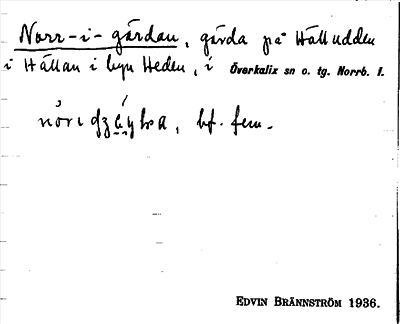 Norr-i-gärdan, gärda på Hälludden
i Hällan i byn Heden, i Överkalix sn o. tg. Norrb. l.
bf. fem.
EDVIN BRÄNNSTRÖM 1936.